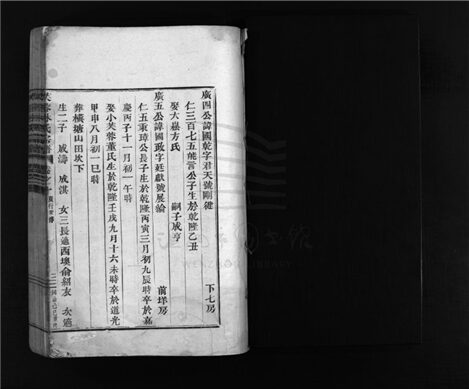 廣四公諱國乾字君天號剛健
下七房
仁三百七五能言公子生於乾隆乙丑
娶大嘉方氏
嗣子咸亨
廣五公諱國政字廷獻號展綸
前垟房
仁五東璋公長子生於乾隆丙寅三月初九辰時卒於嘉
慶丙子十一月初一午時
娶小芙蓉董氏生於乾隆壬戌九月十六未時卒於道光
甲申八月初一巳時
葬橫塘山田坎下
生二子 咸濤 咸淇 女三長適西墺俞紹友 次適